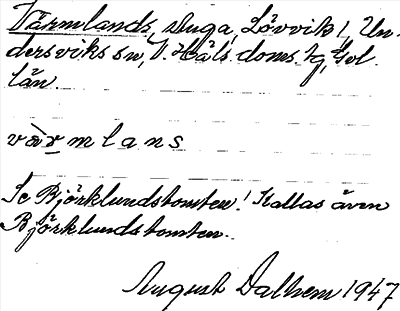 Värmlands, stuga, Lövvik 1, Un-
dersviks sn, V. Häls. doms. tg, Gvl.
län.
värmlans
Se Björklundstomten! Kallas även
Björklundstomten.
August Dalhem 1947